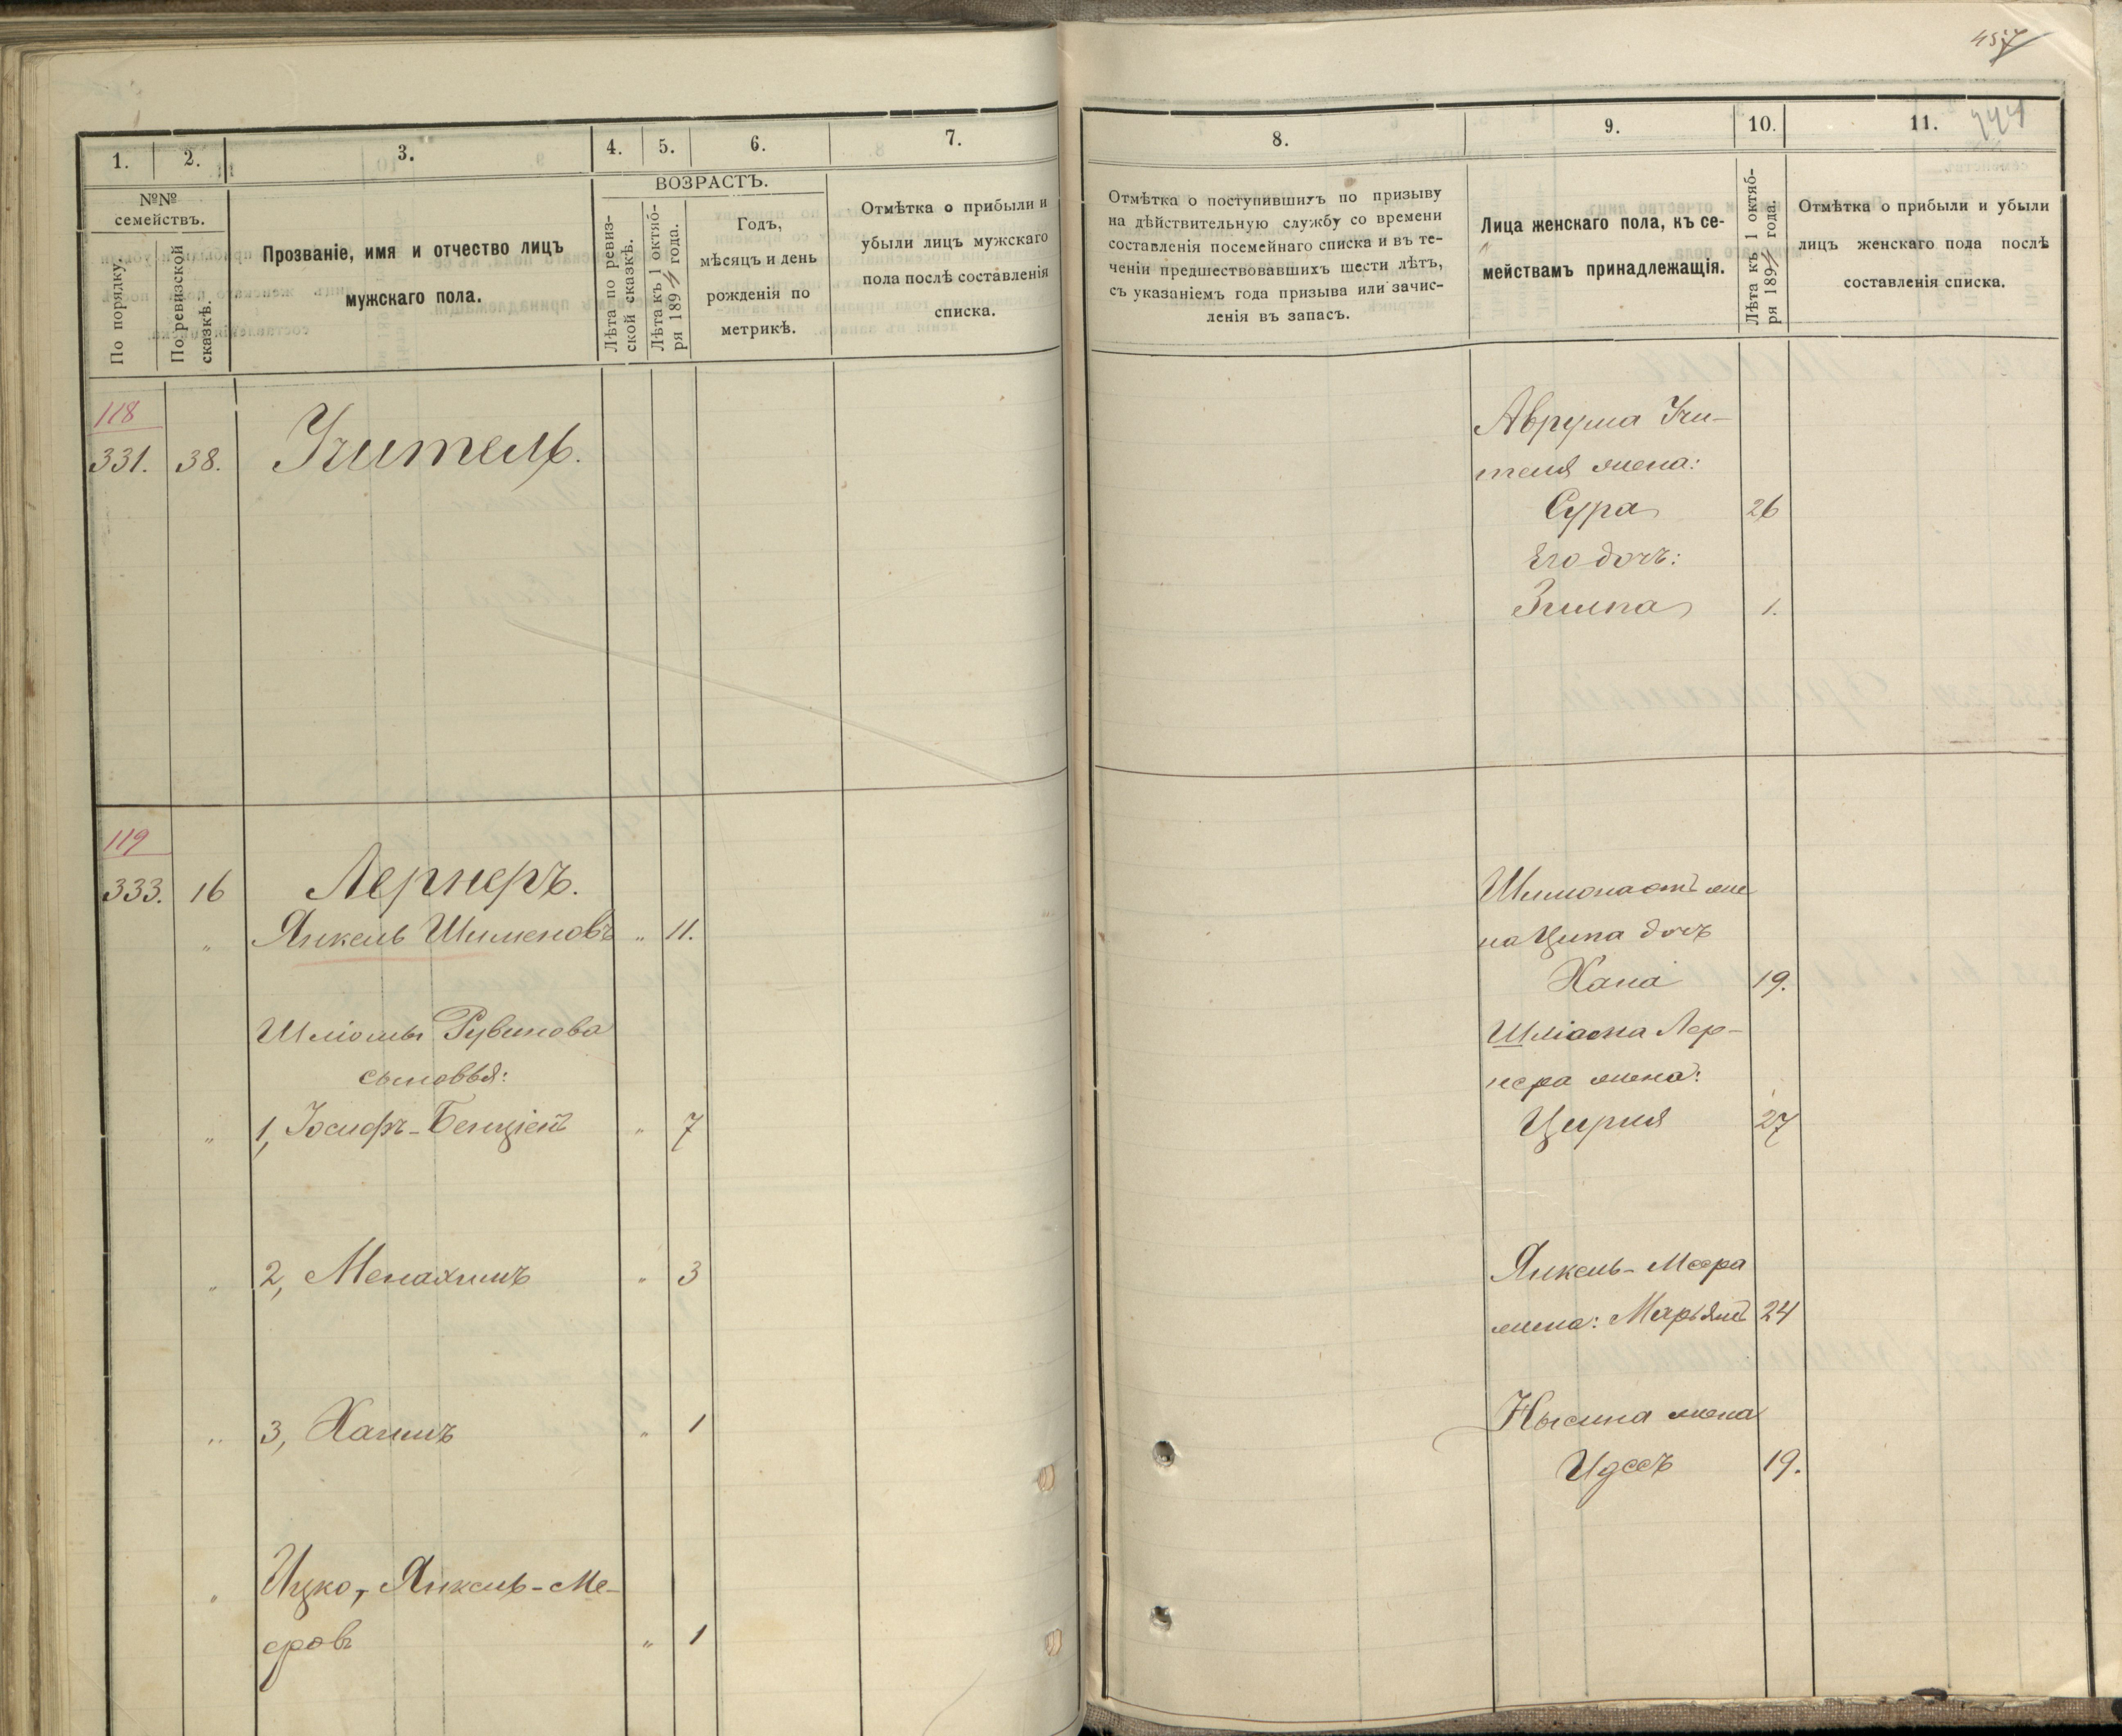 457
1.
2.
3.
4.
5.
6.
7.
№№
семействъ.
По порядку.
По ревизской
сказкѣ.
Прозваніе, имя и отчество лицъ
мужскаго пола.
ВОЗРАСТЪ.
Лѣта по ревиз-
ской сказкѣ.
Лѣта къ 1 октяб-
ря 189 года.
Годъ,
мѣсяцъ и день
рожденія по
метрикѣ.
Отмѣтка о прибыли и
убыли лицъ мужскаго
пола послѣ составленія
списка.
118
331. 38. Учитель.
119
333. 16 Лернеръ.
„ Янкель Шименовъ „ 11.
Шліомы Рувинова
сыновья:
„ 1, Іосифъ-Бенціенъ „ 7
„ 2, Менахимъ „ 3
„ 3, Хаимъ „ 1
„ Ицко, Янкель-Ме-
еровъ „ 1
8.
9.
10.
11.
Отмѣтка о поступившихъ по призыву
на дѣйствительную службу со времени
составленія посемейнаго списка и въ те-
ченіи предшествовавшихъ шести лѣтъ,
съ указаніемъ года призыва или зачис-
ленія въ запасъ.
Лица женскаго пола, къ се-
мействамъ принадлежащія.
Лѣта къ 1 октяб-
ря 189 года.
Отмѣтка о прибыли и убыли
лицъ женскаго пола послѣ
составленія списка.
Аврума Учи-
теля жена:
Сура 26
Его дочь:
Зилпа 1.
Шимона отъ же
на Ципа дочь
Хана 19.
Шліома Лер-
нера жена:
Цирля 27
Янкель-Меера
жена: Марьямъ 24
Нысина жена
Идесъ 19.